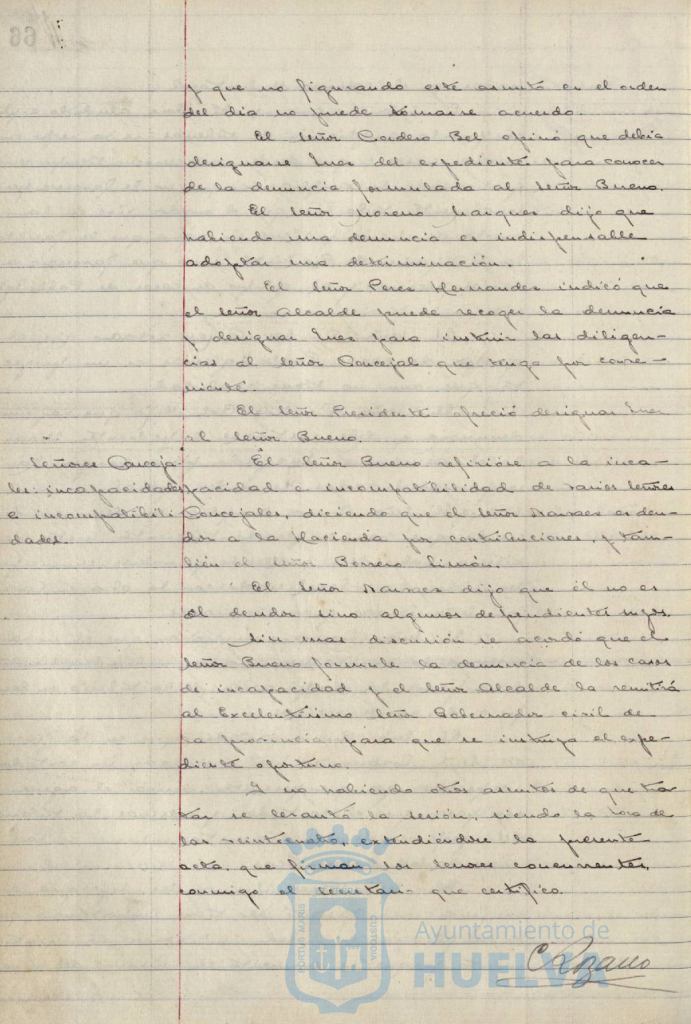 y que no figurando este asunto en el orden
del dia no puede tomarse acuerdo.
El señor Cordero Bel opinó que debia
designarse Juez del expediente para conocer
de la denuncia formulada al señor Bueno.
El señor Moreno Marquez dijo que
habiendo una denuncia es indispensable
adoptar una determinación.
El señor Perez Hernandez indicó que
el señor Alcalde puede recoger la denuncia
y designar Juez para instruir las diligen-
cias al señor Concejal que tenga por conve-
niente.
El señor Presidente ofreció designar Juez
al señor Bueno.
Señores Conceja-
les: incapacidades
e incompatibili
dades.
El señor Bueno refirióse a la inca-
pacidad e incompatibilidad de varios señores
Concejales, diciendo que el señor Narvaez es deu-
dor a la Hacienda por contribuciones, y tam-
bién el señor Borrero Limón.
El señor Narvaez dijo que él no es
el deudor sino algunos dependientes suyos.
Sin mas discusión se acordó que el
señor Bueno formule la denuncia de los casos
de incapacidad y el señor Alcalde la remitirá
al Excelentísimo señor Gobernador civil de
la provincia para que se instruya el expe-
diente oportuno.
Y no habiendo otros asuntos de que tra
tar se levantó la sesión, siendo la hora de
las veinticuatro, extendiéndose la presente
acta, que firman los señores concurrentes,
conmigo el secretario que certifico.
Ayuntamiento de
HUELVA
PORTUS MARIS
CUSTODIA
C Lozano
66